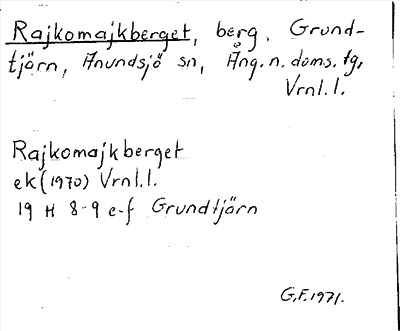 Rajkomajkberget, berg, Grund-
tjärn, Anundsjö sn, Ång. n. doms. tg,
Vrnl.l.
Rajkomajkberget
ek (1970) Vrnl.l.
19 H 8-9 e-f Grundtjärn
G.F. 1971.